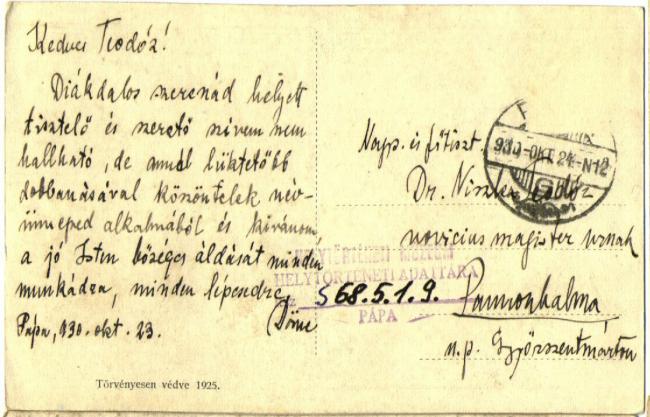 Kedves Teodóz!
Diákdalos szerenád helyett
tisztelő és szerető szívem nem
hallható, de annál lüktetőbb
dobbanásával köszöntelek név-
ünneped alkalmából és kívánom
a jó Isten bőséges áldását minden
munkádra, minden lépésedre.
Pápa, 930. okt. 23. Döme
Törvényesen védve 1925.
Nagys. és főtiszt.
Dr. Niszler Teodóz
novicius magister urnak
Pannonhalma
u. p. Győrszentmárton
930-OKT. 24.-N12
HELYTÖRTÉNETI MÚZEUM
HELYTÖRTÉNETI ADATTÁRA
S 68.5.1.9.
PÁPA